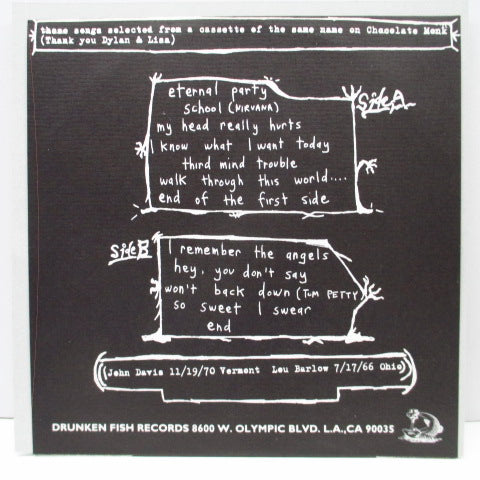 these songs selected from a cassette of the same name on Chocolate Monk
(Thank you Dylan & Lisa)
Side A
eternal party
school (NIRVANA)
my head really hurts
I know what I want today
third mind trouble
walk through this world....
end of the first side
Side B
I remember the angels
hey, you don't say
won't back down (TOM PETTY)
so sweet I swear
end
(John Davis 11/19/70 Vermont Lou Barlow 7/17/66 Ohio)
DRUNKEN FISH RECORDS 8600 W. OLYMPIC BLVD. L.A.,CA 90035